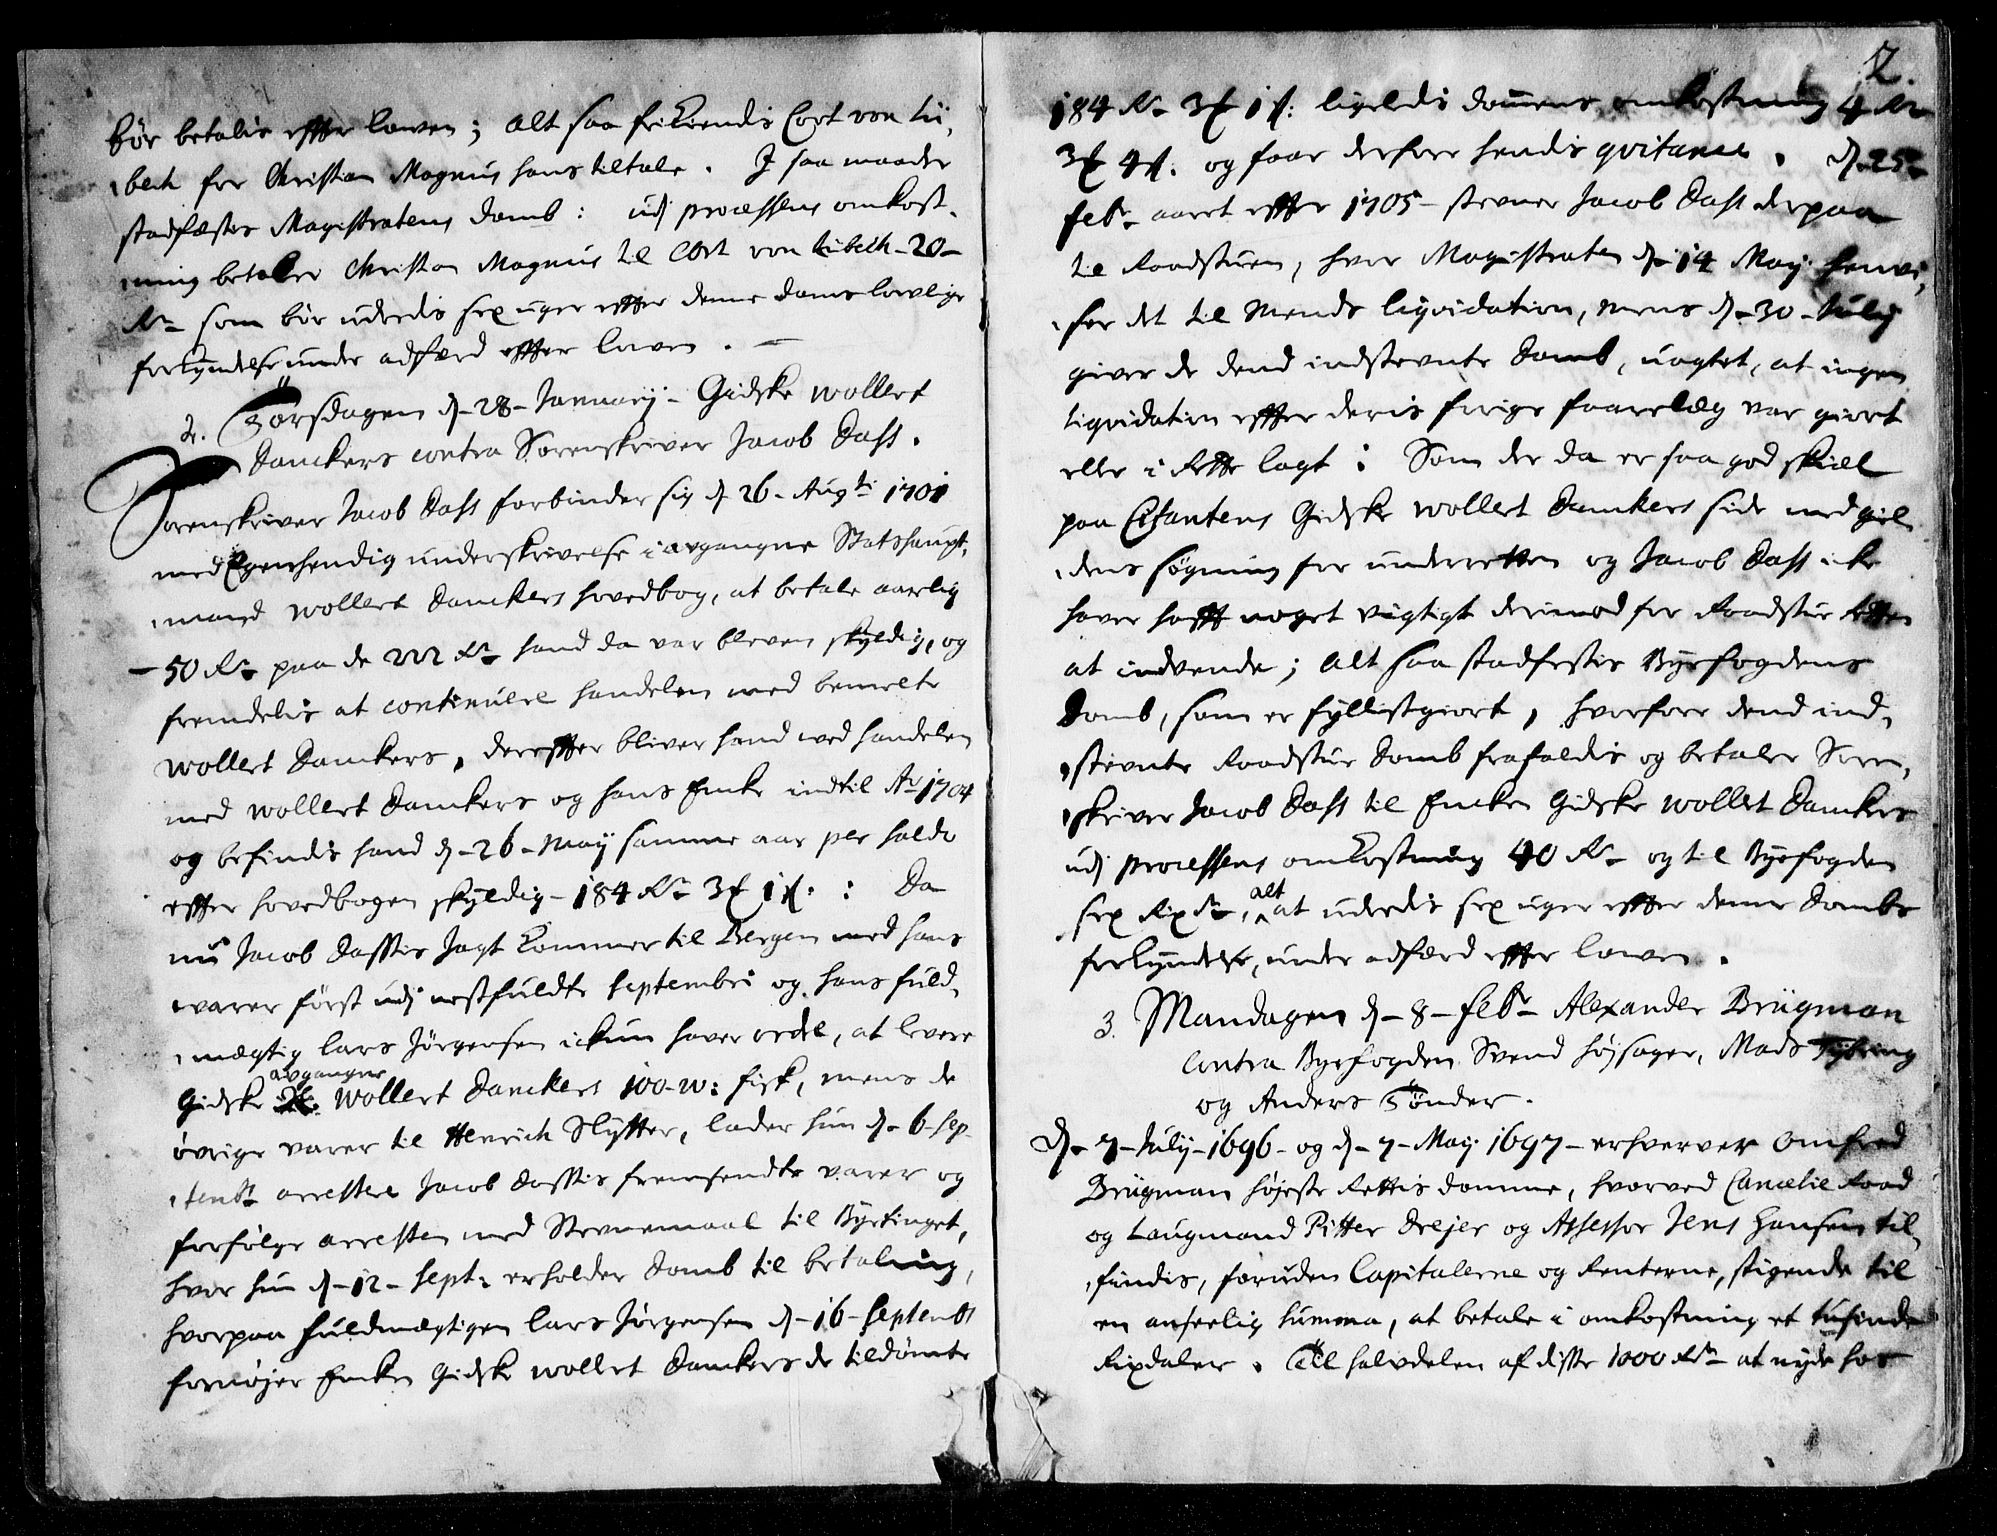 bør betalis effter lowen; Alt saa frikiendis Cort von Lü,
,bech for Christian Magnus hans tiltale. J saa maader
stadfæstes Magistratens domb: udj processens omkost,
,ning betaler Christian Magnus til Cort von Lübech -20-
Rdr som bør uderedis sex uger effter denne doms lovlige
forkyndelse under adfærd effter lowen.
2. Torsdagen d. 28. January. Gidske Wollert
Danckers contra Sorenskriver Jacob Dass.
Sorenskriver Jacob Dass forbinder sig d. 26. Augti 1701
med Egenhendig underskrivelse i avgangne Statshaupt,
,mand Wollert Danckers hovedbog, at betale aarlig
-50 Rdr paa de 222 Rdr hand da var bleven skyldig, og
fremdelis at continuere handelen med bemelte
Wollert Danckers, dereffter bliver hand ved handelen
med Wollert Danckers og hans Encke indtil Ao 1704
og befindis hand d. 26. May samme aar per Saldo
effter hovedbogen skyldig - 184 Rdr 3 ℳ 1 ß: : Da
nu Jacob Dassis Jagt kommer til Bergen med hans
varer først udj nestfuldte Septembri og hans fuld,
,mægtig Lars Jørgensen ickun haver ordre, at levere
Gidske avgangne Wollert Danckers 100 w: fisk, mens de
øvrige varer til Henrich Slytter, lader hun d. 6 Sep,
,tembr arrestere Jacob Dassis fremsendte varer og
forfølge arresten med Stevnemaal til Byetinget,
hvor hun d. 12. Sept: erholder domb til betaling,
hvorpaa fuldmægtigen Lars Jørgensen d. 16. Septembr
fornøjer Encken Gidske Wollert Danckers de tildømte
2.
184 Rdr 3 ℳ 1 ß: ligeledis domens omkostning 4 Rdr
3 ℳ 4 ß. og faar derfore hendis qvitance. d. 25.
Febr. aaret effter 1705 - stevner Jacob Dass derpaa
til Raadstuen, hvor Magistraten d. 14 May henvi,
,ser det til Mends liqvidation, mens d. 30. July
giver de dend indstevnte Domb, uagtet, at ingen
liqvidation effter deris forige faarelæg var giort
eller i Rette lagt: Som der da er saa god skiæl
paa Citantens Gidske Wollert Danckers side med giel
,dens søgning for underretten og Jacob Dass icke
haver hafft noget vigtigt derimod for Raadstue Retten
at indvende; Alt saa stadfestis Byefogdens
Domb, som er fyllistgiort, hvorfore dend ind,
,stevnte Raadstue Domb frafaldis og betaler Soren,
,skriver Jacob Dass til Encken Gidske Wollert Danckers
udj processens omkostning 40 Rdr og til Byefogden
sex Rixdr, alt at uderedis sex uger effter denne Dombs
forkyndelse, under adfærd effter lowen.
3. Mandagen d. 8. Febr. Alexander Brügman
contra Byefogden Svend Højsager, Mads
og Anders Tønder.
d. 7. July 1696 og d. 7. May 1697 - erhverver Omfred
Brügman højeste Rettis domme, hvorved Cancelie Raad
og Laugmand Pitter Drejer og Assessor Jens Hansen til,
,findis, foruden Capitalerne og Renterne, stigende til
en anseelig Summa, at betale i omkostning et tusinde
Rixdaler. Till halvdelen af disse 1000 Rdr at nyde hos